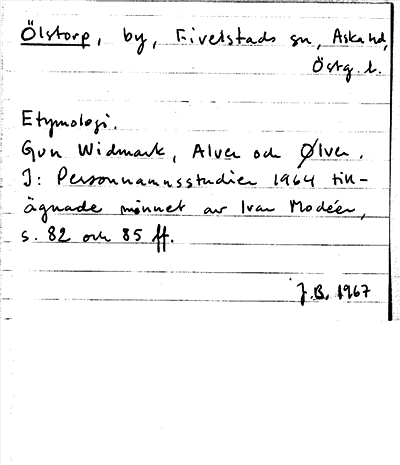 Ölstorp, by, Fivelstads sn, Aska hd,
Östg. l.
Etymologi.
Gun Widmark, Alver och Ølver.
I: Personnamnsstudier 1964 till-
ägnade minnet av Ivar Modéer,
s. 82 och 85 ff.
J.B. 1967